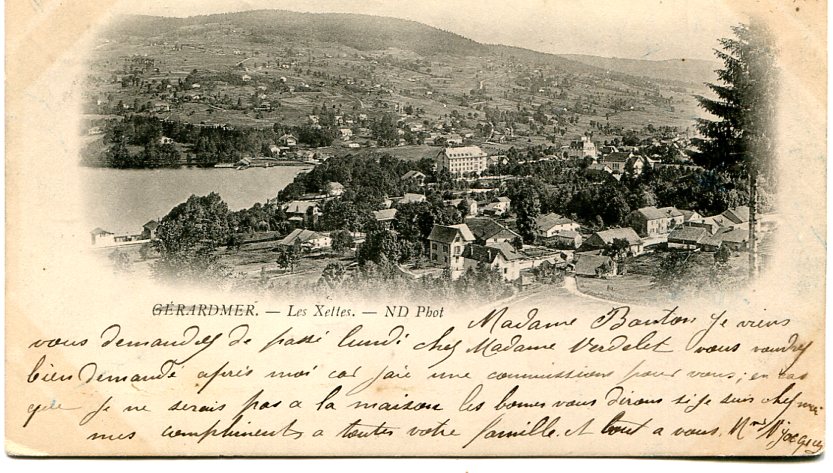 GÉRARDMER. — Les Xettes. — ND Phot
Madame Bauton je viens
vous demandez de passé lundi chez Madame Verdelet vous voudrez
bien demandé après moi car jaie une commissions pour vous; en cas
que je ne serais pas a la maison les bones vous dirons si je suis chez moi
mes compliments a toutes votre famille. et tout a vous. Mme